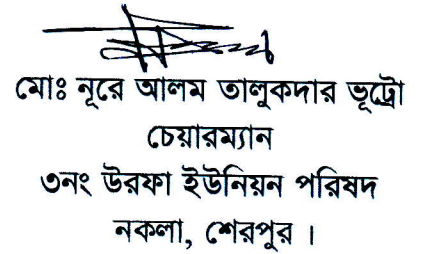 মোঃ নূরে আলম তালুকদার ভূট্রো
চেয়ারম্যান
৩নং উরফা ইউনিয়ন পরিষদ
নকলা, শেরপুর ।